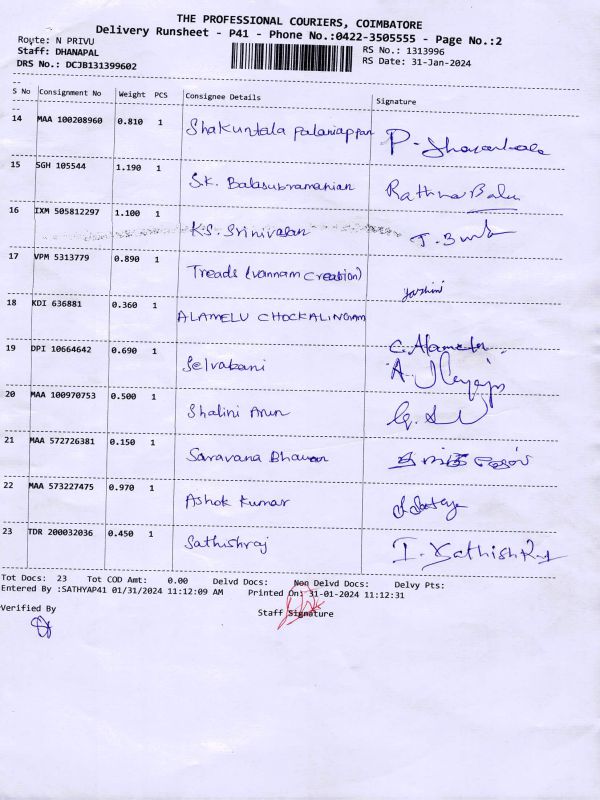 THE PROFESSIONAL COURIERS, COIMBATORE
Delivery Runsheet - P41 - Phone No.:0422-3505555 - Page No.:2
Route: N PRIVU
RS No.: 1313996
Staff: DHANAPAL
RS Date: 31-Jan-2024
DRS No.: DCJB131399602
S No Consignment No Weight PCS Consignee Details Signature
14 MAA 100208960 0.810 1 Shakuntala Palaniappan
15 SGH 105544 1.190 1 S.K. Balasubramanian Rathna Balu
16 IXM 505812297 1.100 1 K.S. Srinivasan
17 VPM 5313779 0.890 1 Treads (vannam creation)
18 KDI 636881 0.360 1 ALAMELU CHOCKALINGAM C. Alamelu
19 DPI 10664642 0.690 1 Selvabani
20 MAA 100970753 0.500 1 Shalini Arun
21 MAA 572726381 0.150 1 Saravana Bhavan
22 MAA 573227475 0.970 1 Ashok Kumar
23 TDR 200032036 0.450 1 Sathishraj I. Sathish Raj
Tot Docs: 23 Tot COD Amt: 0.00 Delvd Docs: Non Delvd Docs: Delvy Pts:
Entered By :SATHYAP41 01/31/2024 11:12:09 AM Printed On: 31-01-2024 11:12:31
Verified By Staff Signature